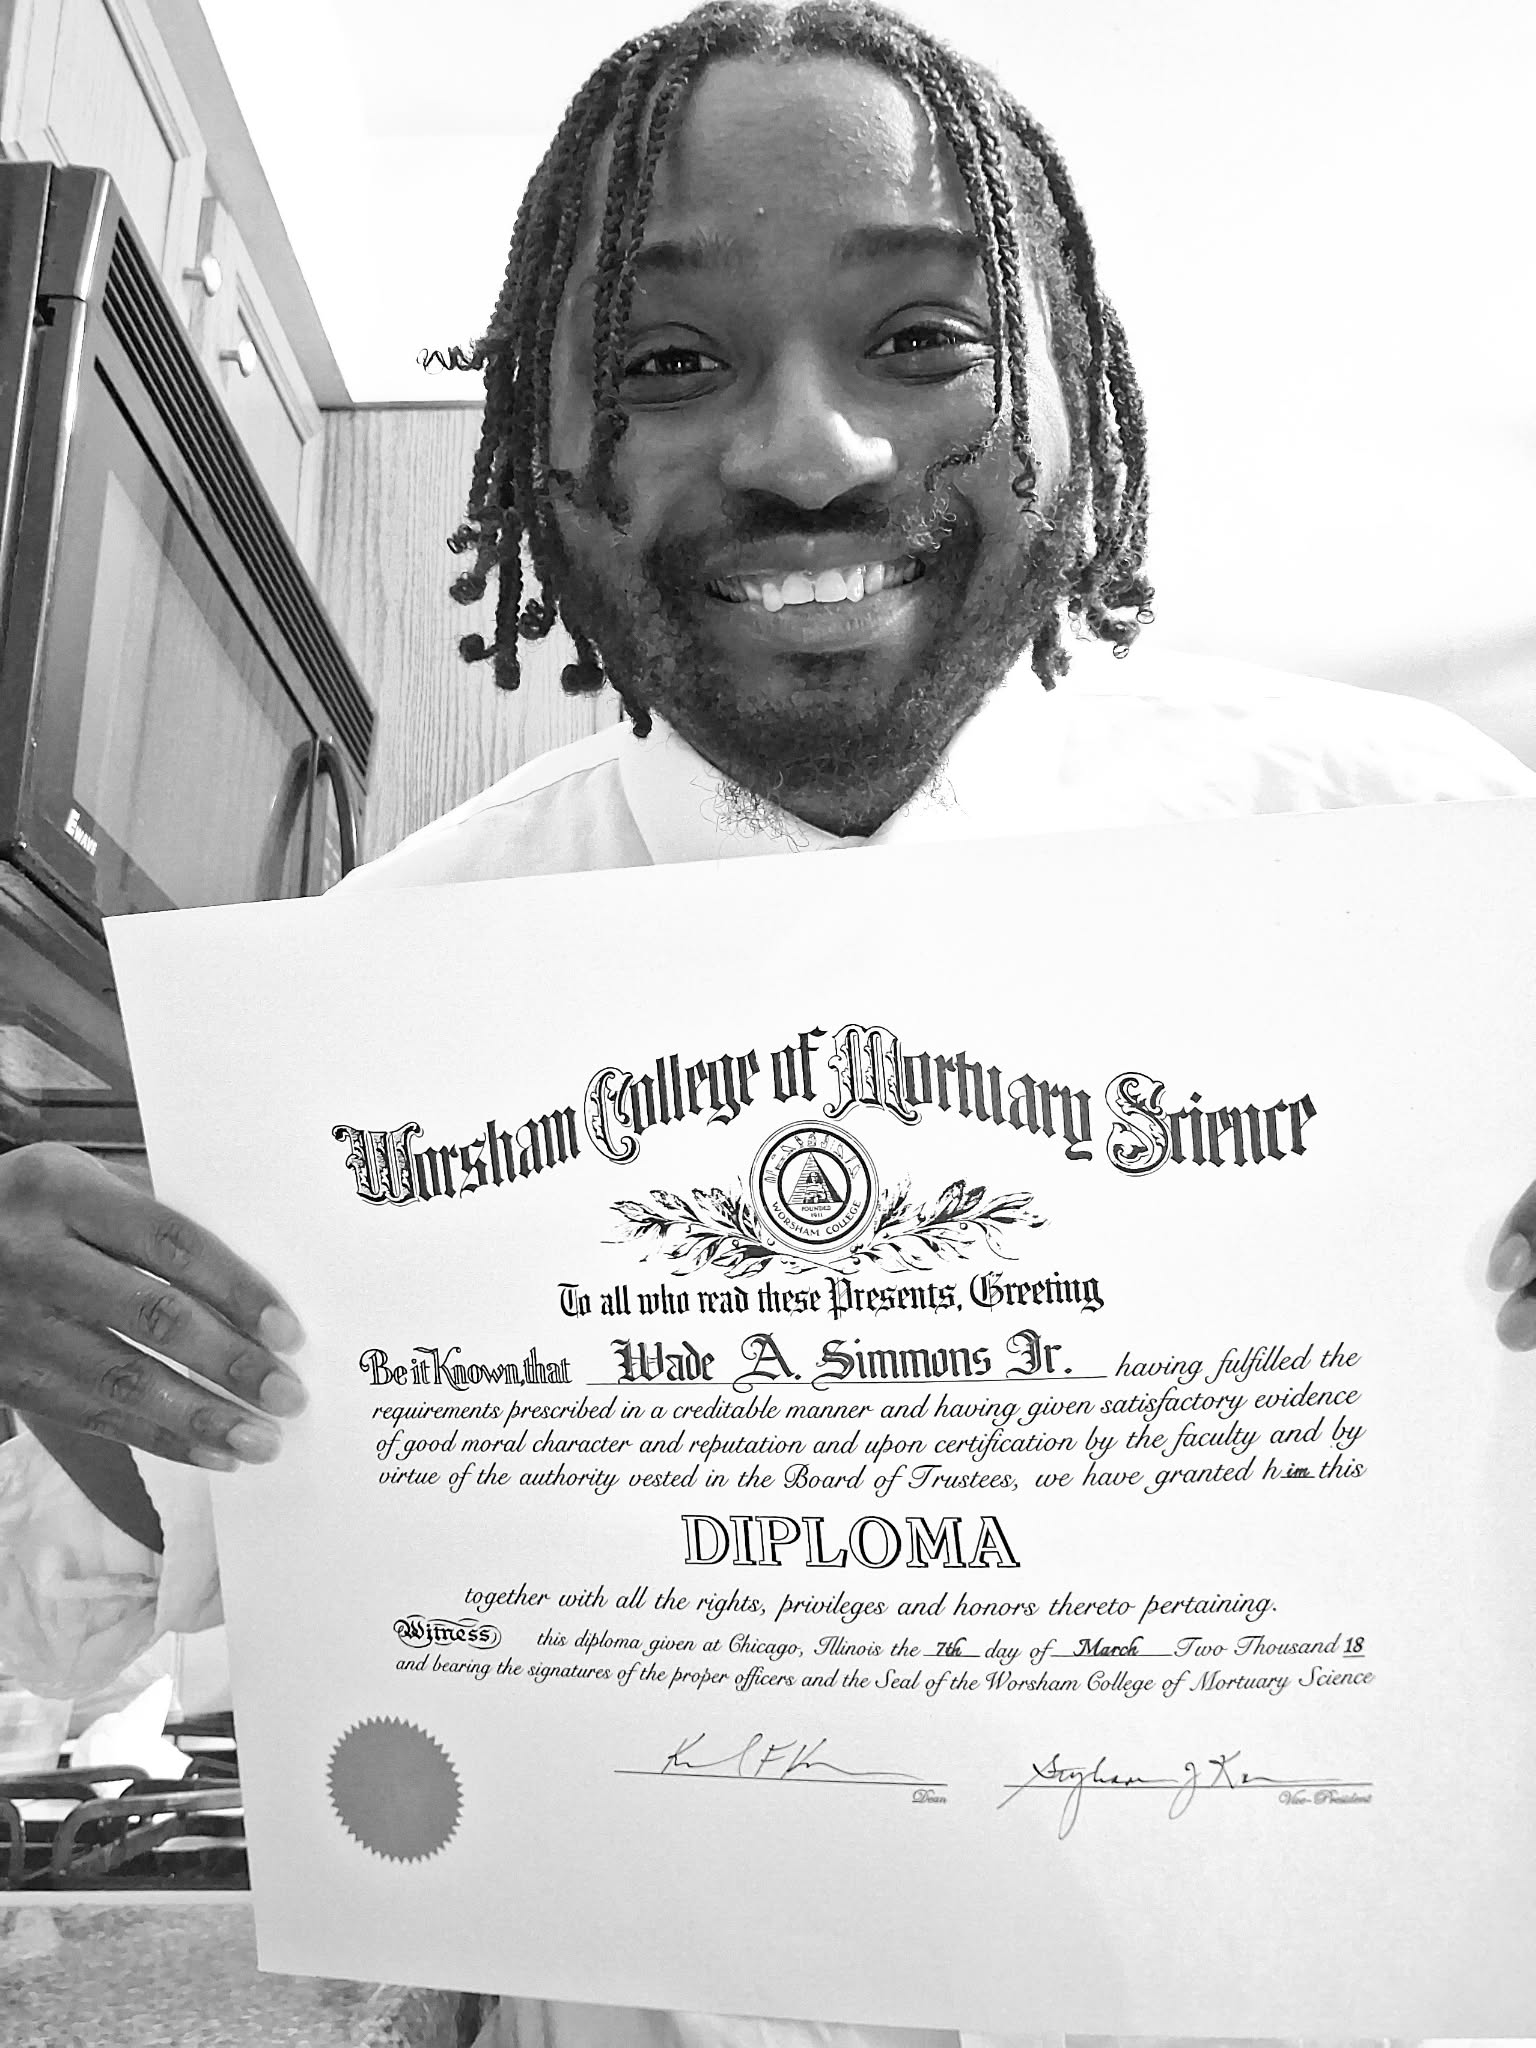 EWAVE
Worsham College of Mortuary Science
FOUNDED
1911
WORSHAM COLLEGE
To all who read these Presents, Greeting
Be it Known, that Wade A. Simmons Jr. having fulfilled the
requirements prescribed in a creditable manner and having given satisfactory evidence
of good moral character and reputation and upon certification by the faculty and by
virtue of the authority vested in the Board of Trustees, we have granted him this
DIPLOMA
together with all the rights, privileges and honors thereto pertaining.
Witness this diploma given at Chicago, Illinois the 7th day of March Two Thousand 18
and bearing the signatures of the proper officers and the Seal of the Worsham College of Mortuary Science
Dean
Vice-President